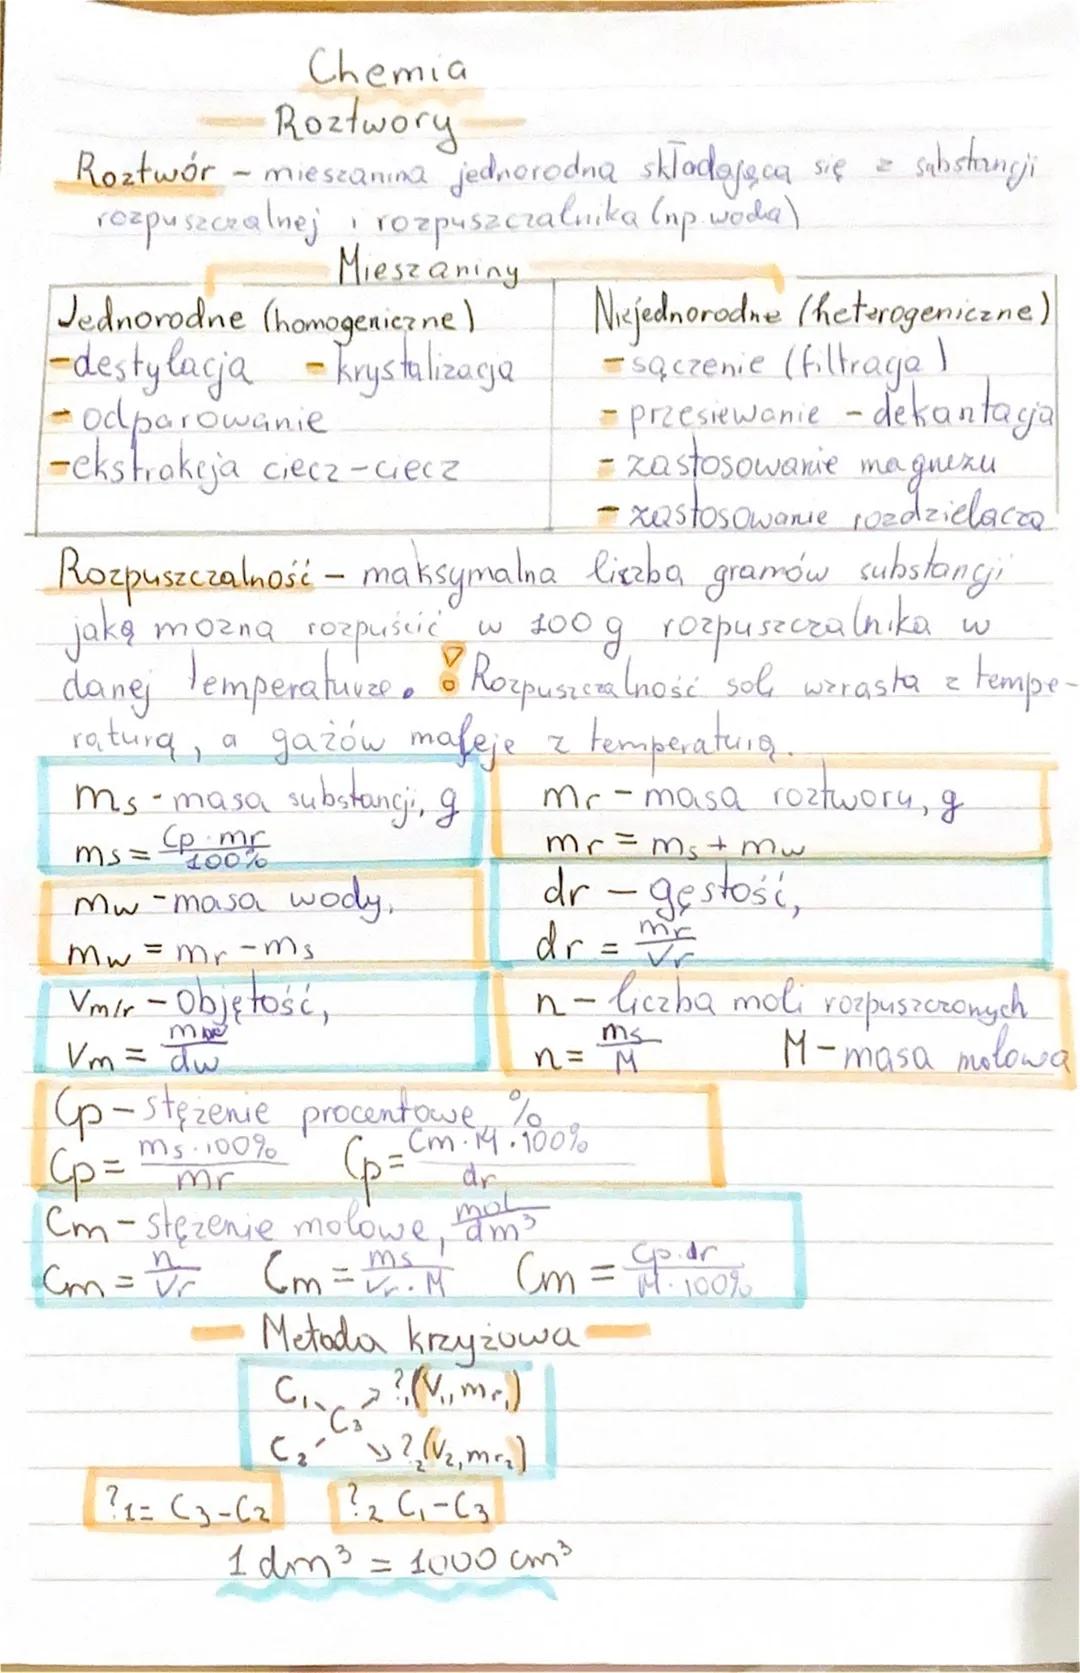 Chemia
Roztwory
Roztwór - mieszanina jednorodna składająca się z substancji
rozpuszczalnej i rozpuszczalnika (np. woda)
Mieszaniny
Jednorodne (homogeniczne)
- destylacja - krystalizacja
- odparowanie
- ekstrakcja ciecz-ciecz
Niejednorodne (heterogeniczne)
- sączenie (filtracja)
- przesiewanie - dekantacja
- zastosowanie magnezu
- zastosowanie rozdzielacza
Rozpuszczalność - maksymalna liczba gramów substancji
jaką można rozpuścić w 100 g rozpuszczalnika w
danej temperaturze. ! Rozpuszczalność soli wzrasta z tempe-
raturą, a gazów maleje z temperaturą.
ms - masa substancji, g
ms = Cp · mr / 100%
mr - masa roztworu, g
mr = ms + mw
mw - masa wody,
mw = mr - ms
dr - gęstość,
dr = mr / Vr
Vm/r - Objętość,
Vm = mw / dw
n - liczba moli rozpuszczonych
n = ms / M M - masa molowa
Cp - stężenie procentowe, %
Cp = ms · 100% / mr Cp = Cm · M · 100% / dr
Cm - stężenie molowe, mol / dm³
Cm = n / Vr Cm = ms / Vr · M Cm = Cp · dr / M · 100%
Metoda krzyżowa
C₁ ↗ ?₁ (V₁, mr₁)
C₃
C₂ ↘ ?₂ (V₂, mr₂)
?₁ = C₃ - C₂ ?₂ C₁ - C₃
1 dm³ = 1000 cm³